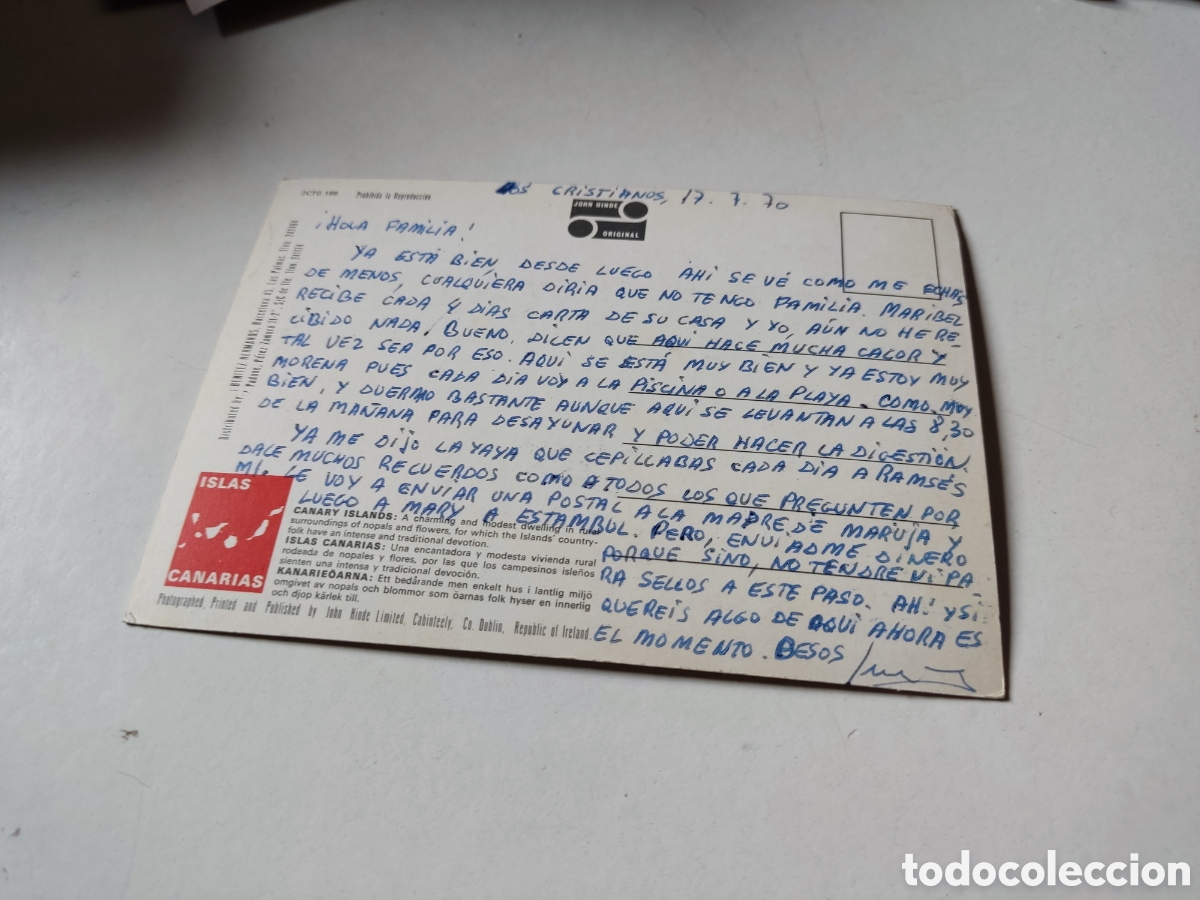 2CTO 196 Prohibida la Reproducción
LOS CRISTIANOS, 17. 7. 70
JOHN HINDE
ORIGINAL
¡HOLA FAMILIA!
YA ESTÁ BIEN, DESDE LUEGO AHI SE VÉ COMO ME ECHAIS
DE MENOS, CUALQUIERA DIRIA QUE NO TENGO FAMILIA. MARIBEL
RECIBE CADA 4 DIAS CARTA DE SU CASA Y YO, AÚN NO HE RE-
CIBIDO NADA. BUENO, DICEN QUE AQUI HACE MUCHA CALOR Y
TAL VEZ SEA POR ESO. AQUI SE ESTÁ MUY BIEN Y YA ESTOY MUY
MORENA PUES CADA DIA VOY A LA PISCINA O A LA PLAYA. COMO MUY
BIEN, Y DUERMO BASTANTE AUNQUE AQUI SE LEVANTAN A LAS 8,30
DE LA MAÑANA PARA DESAYUNAR Y PODER HACER LA DIGESTIÓN.
YA ME DIJO LA YAYA QUE CEPILLABAS CADA DIA A RAMSÉS
DALE MUCHOS RECUERDOS COMO A TODOS LOS QUE PREGUNTEN POR
MI. LE VOY A ENVIAR UNA POSTAL A LA MADRE DE MARUJA Y
LUEGO A MARY A ESTAMBUL. PERO, ENVIADME DINERO
PORQUE SINO, NO TENDRÉ NI PA-
RA SELLOS A ESTE PASO. AH! Y SI
QUEREIS ALGO DE AQUI AHORA ES
EL MOMENTO. BESOS
ISLAS
CANARIAS
CANARY ISLANDS: A charming and modest dwelling in rural
surroundings of nopals and flowers, for which the Islands' country-
folk have an intense and traditional devotion.
ISLAS CANARIAS: Una encantadora y modesta vivienda rural
rodeada de nopales y flores, por las que los campesinos isleños
sienten una intensa y tradicional devoción.
KANARIEÖARNA: Ett bedårande men enkelt hus i lantlig miljö
omgivet av nopals och blommor som öarnas folk hyser en innerlig
och djop kärlek till.
Photographed, Printed and Published by John Hinde Limited, Cabinteely, Co. Dublin, Republic of Ireland.
todocoleccion